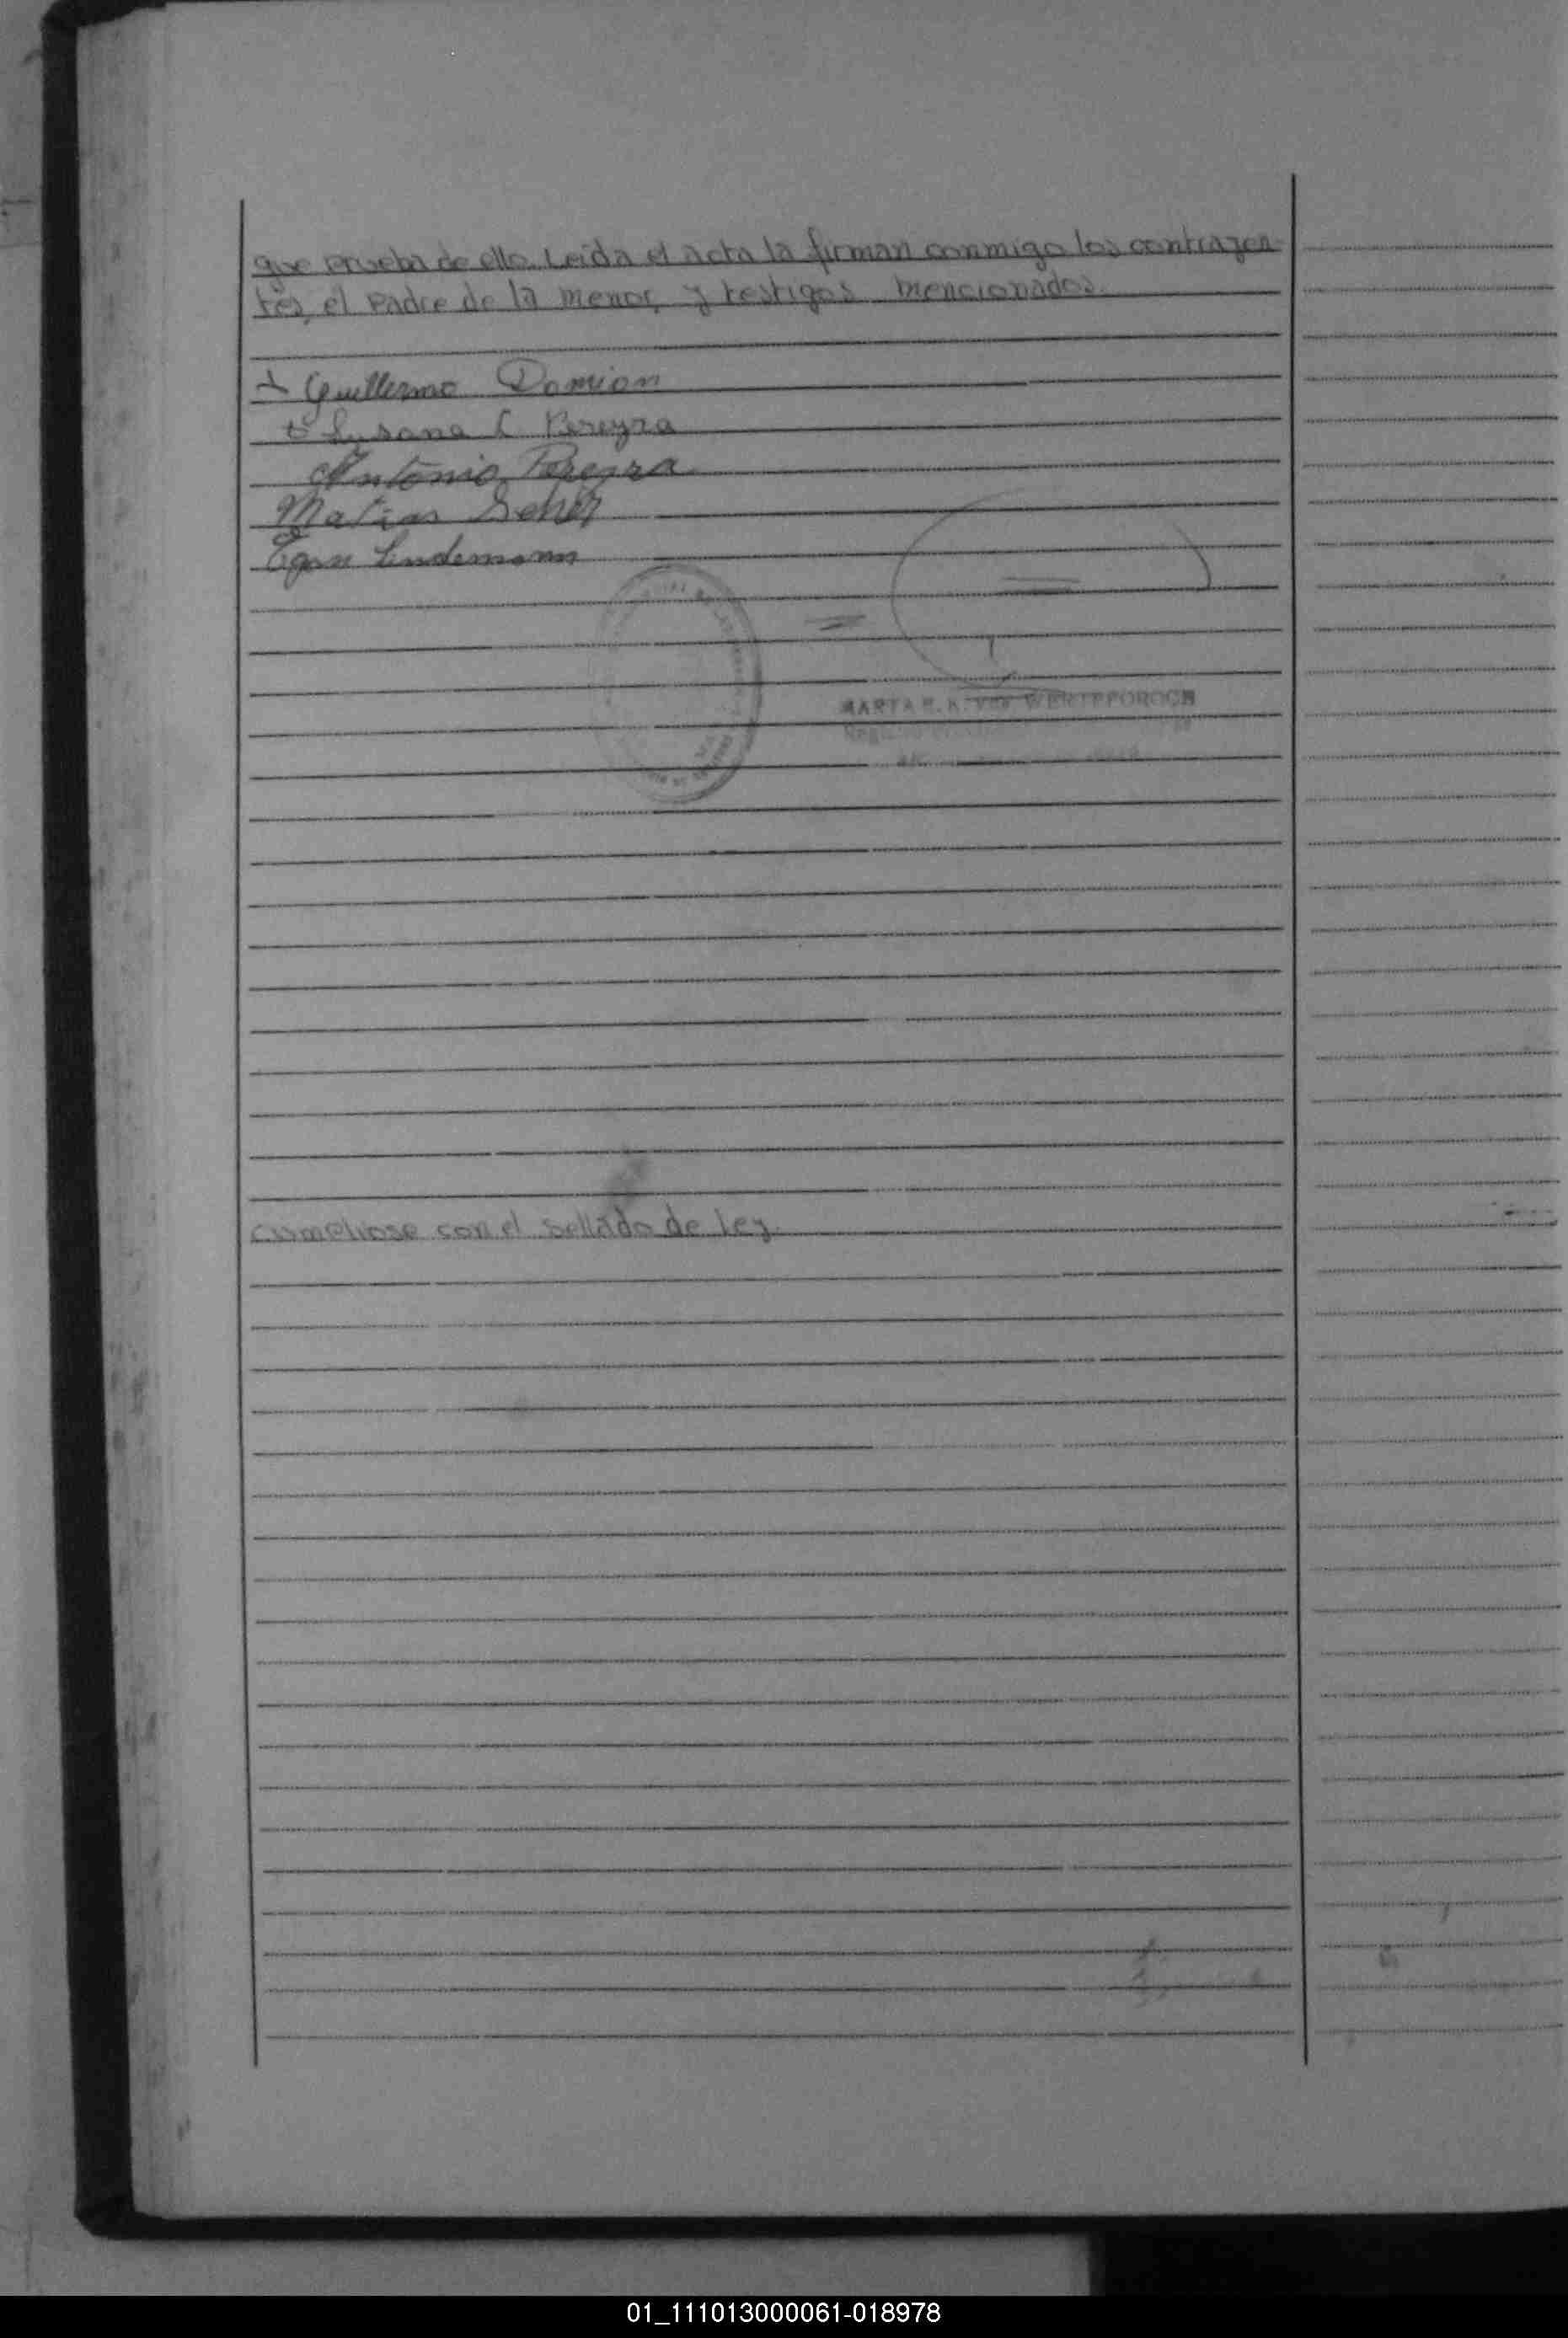 que prueba de ello. Leída el acta la firman conmigo los contrayen
tes, el Padre de la menor, y testigos mencionados.
Guillermo Damian
Susana C. Pereyra
Antonio Pereyra
Matias
Egon Lindemann
MARTA
cumpliose con el sellado de Ley.
01_111013000061-018978